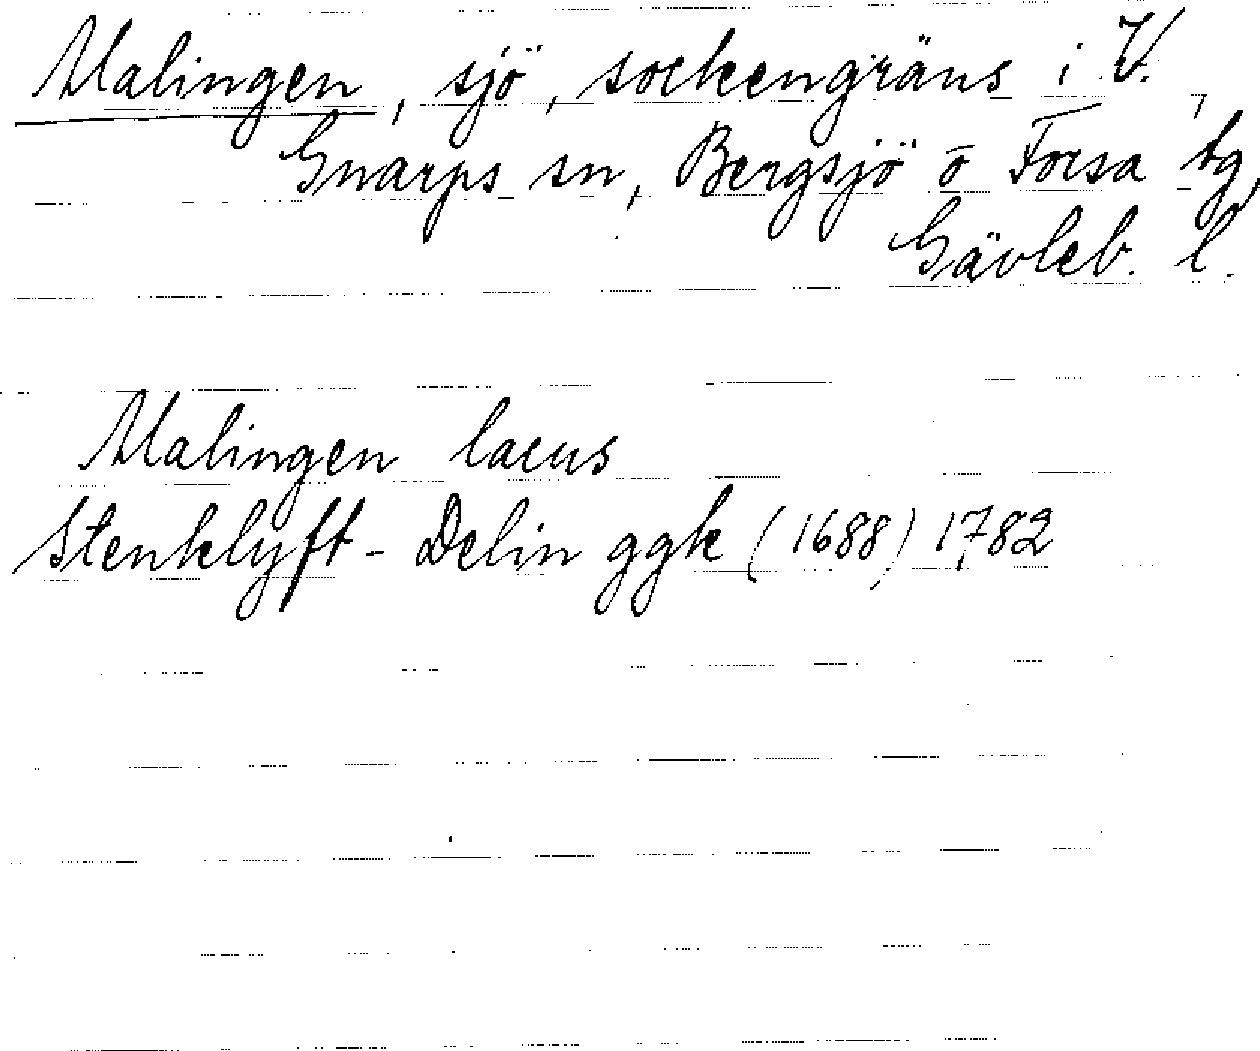 Malingen, sjö, sockengräns i V.,
Gnarps sn, Bergsjö o Forsa tg,
Gävleb. l.
Malingen lacus
Stenklyft - Delin ggk (1688) 1782